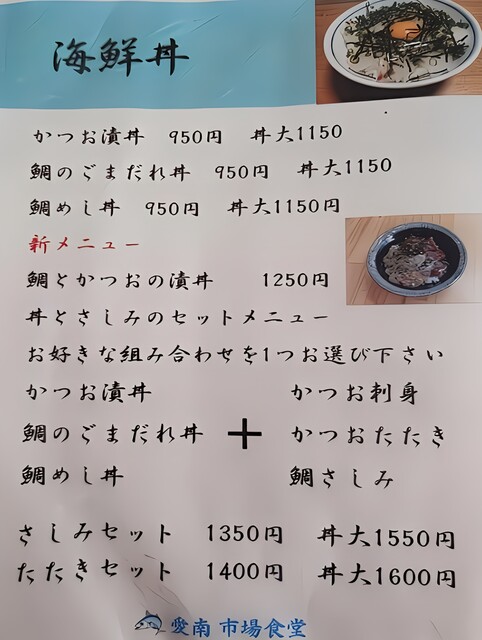 海鮮丼
かつお漬丼 950円 丼大1150
鯛のごまだれ丼 950円 丼大1150
鯛めし丼 950円 丼大1150円
新メニュー
鯛とかつおの漬丼 1250円
丼とさしみのセットメニュー
お好きな組み合わせを1つお選び下さい
かつお漬丼 かつお刺身
鯛のごまだれ丼 + かつおたたき
鯛めし丼 鯛さしみ
さしみセット 1350円 丼大1550円
たたきセット 1400円 丼大1600円
愛南 市場食堂